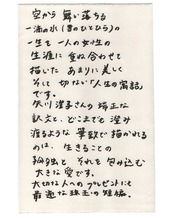 空から 舞い落ちる
一滴の水(雪のひとひら)の
一生を 一人の女性の
生涯に 重ね合わせて
描いた あまりに美しく
そして 切ない「人生の寓話」
です。
矢川澄子さんの端正な
訳文と、どこまでも澄み
渡るような 筆致で描かれる
のは、生きることの
孤独と それを包み込む
大きな愛です。
大切な人へのプレゼントにも
最適な珠玉の短編。